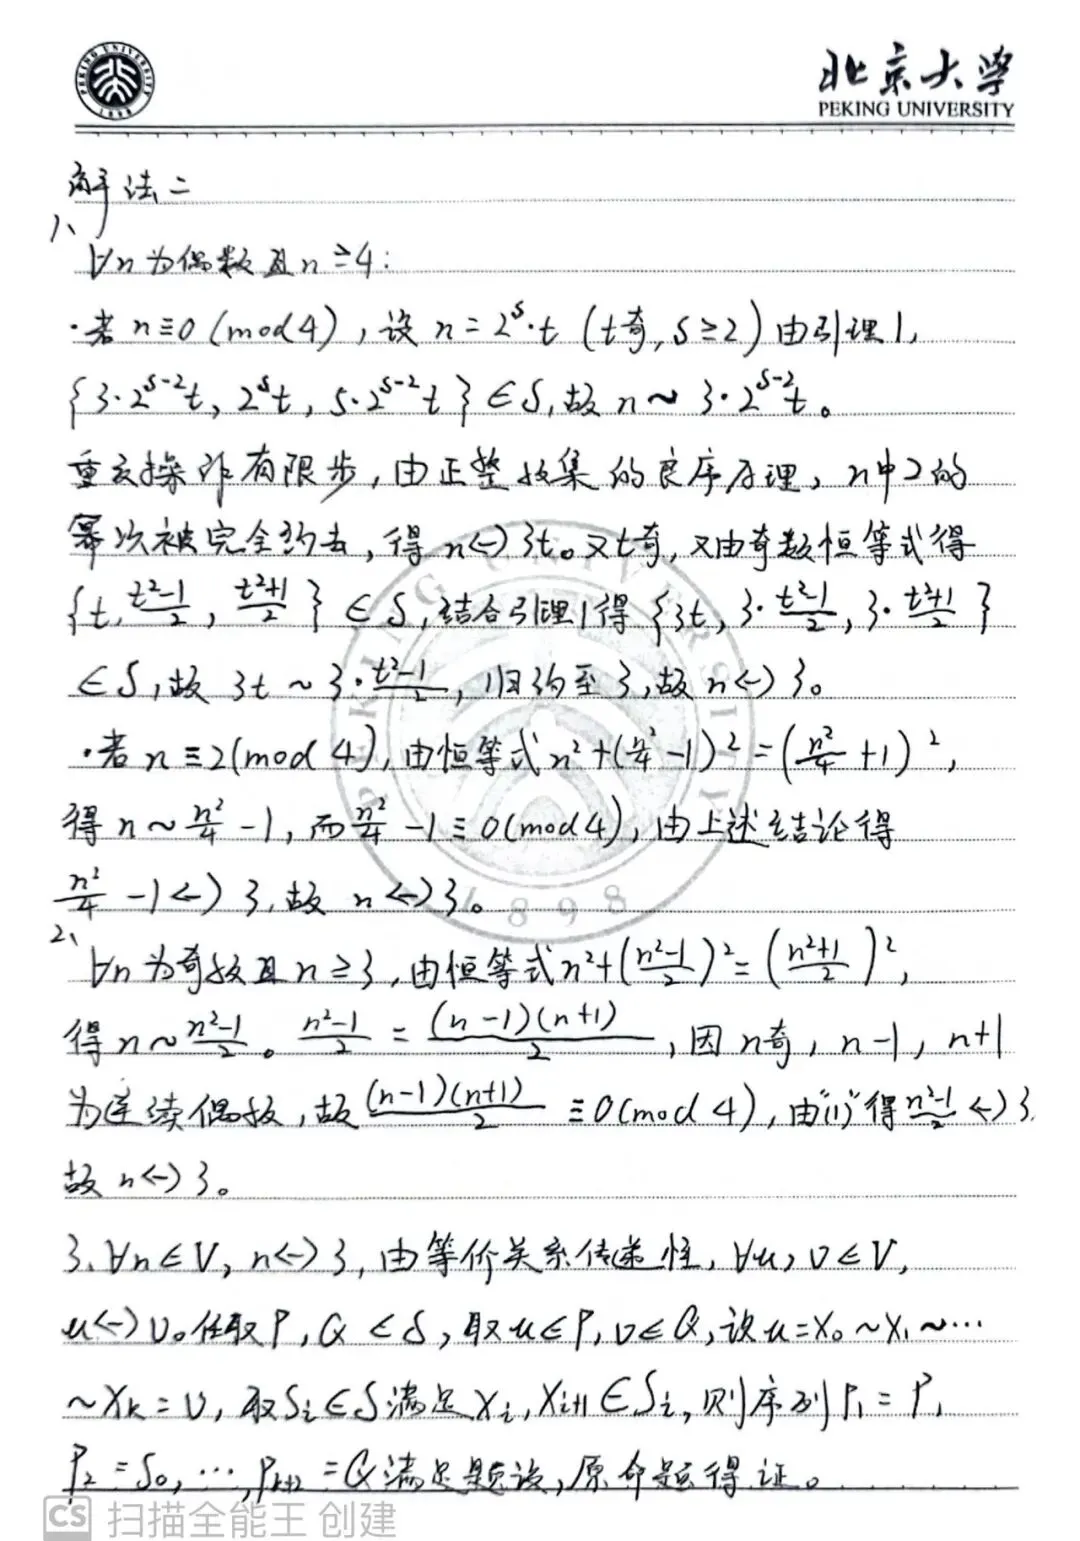 北京大学
PEKING UNIVERSITY
解法二
1、
∀n为偶数且n≥4:
·若n≡0(mod4),设n=2^s·t(t奇,s≥2)由引理1,
{3·2^{s-2}t, 2^s t, 5·2^{s-2}t}∈S,故n~3·2^{s-2}t。
重复操作有限步,由正整数集的良序原理,n中2的
幂次被完全约去,得n↔3t。又t奇,又由奇数恒等式得
{t, (t²-1)/2, (t²+1)/2}∈S,结合引理1得{3t, 3·(t²-1)/2, 3·(t²+1)/2}
∈S,故3t~3·(t²-1)/2,归约至3,故n↔3。
·若n≡2(mod4),由恒等式n²+(n²/4-1)²=(n²/4+1)²,
得n~n²/4-1,而n²/4-1≡0(mod4),由上述结论得
n²/4-1↔3,故n↔3。
2、
∀n为奇数且n≥3,由恒等式n²+((n²-1)/2)²=((n²+1)/2)²,
得n~(n²-1)/2。(n²-1)/2=(n-1)(n+1)/2,因n奇,n-1,n+1
为连续偶数,故(n-1)(n+1)/2≡0(mod4),由“(1)”得(n²-1)/2↔3,
故n↔3。
3、∀n∈V,n↔3,由等价关系传递性,∀u,v∈V,
u↔v。任取P,Q∈S,取u∈P,v∈Q,设u=X₀~X₁~…
~X_k=v,取S_i∈S满足X_i,X_{i+1}∈S_i,则序列P₁=P,
P₂=S₀,…,P_{k+2}=Q满足题设,原命题得证。
PEKING UNIVERSITY
1898
CS 扫描全能王 创建